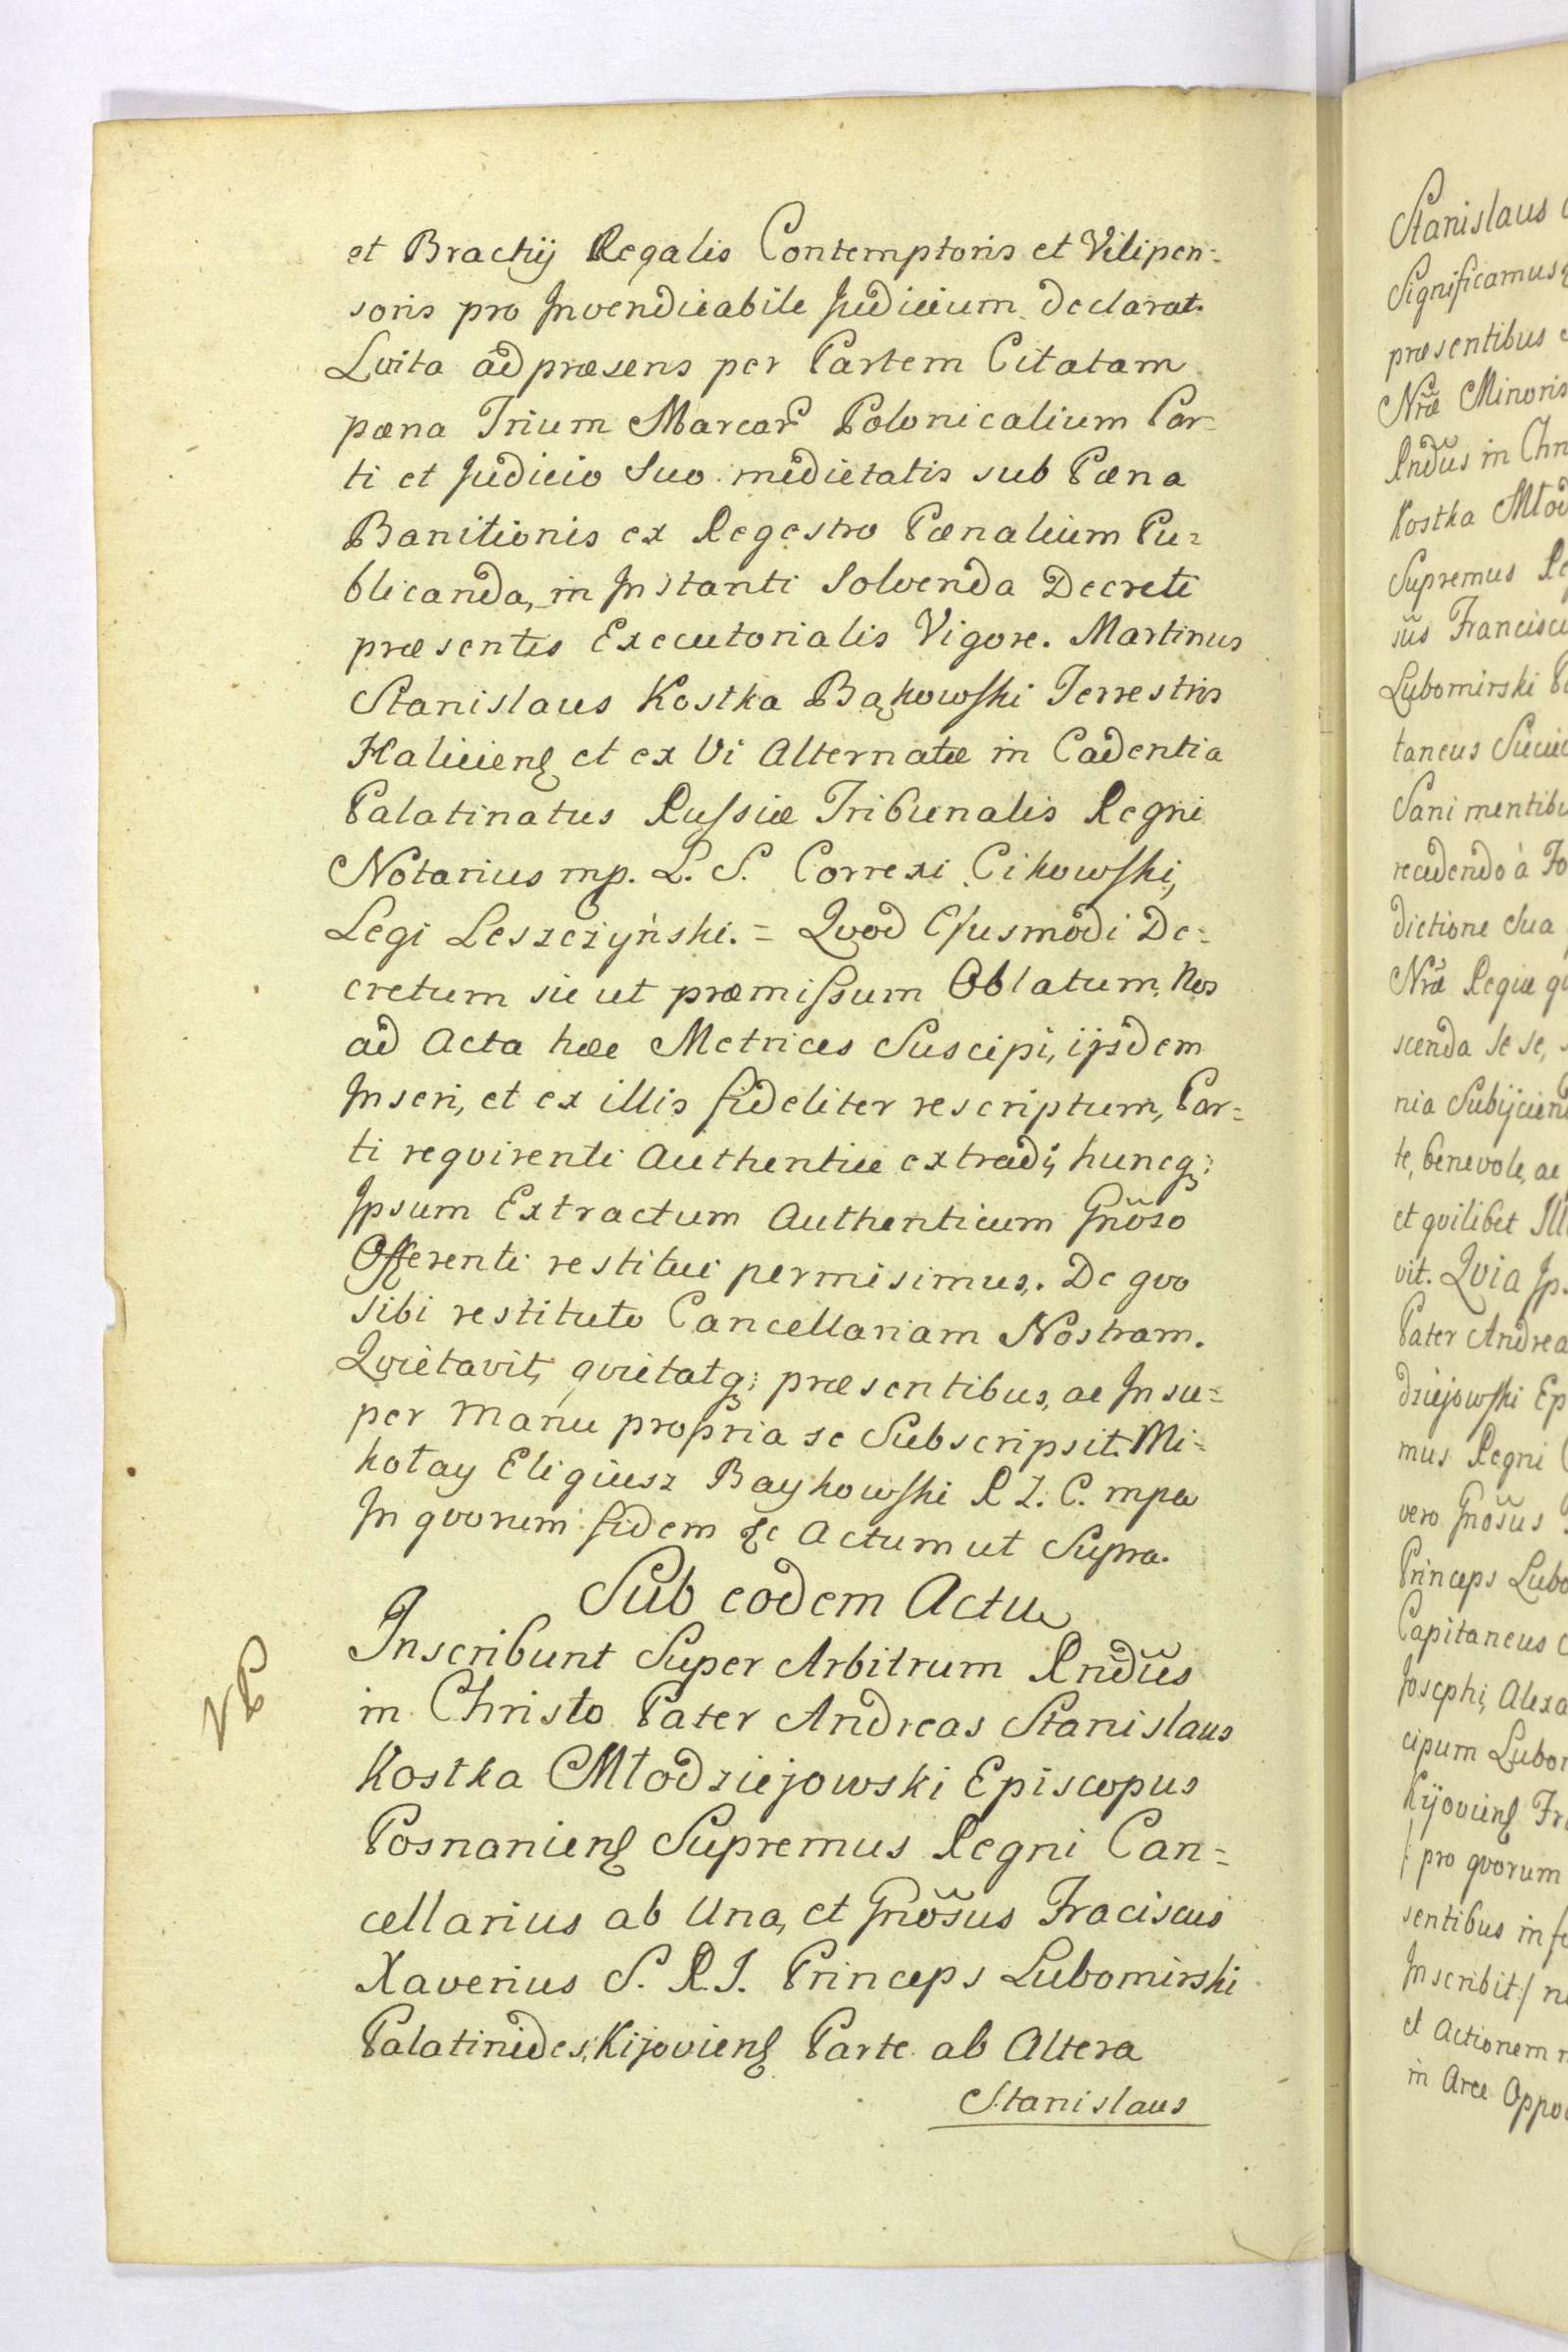 et Brachij Regalis Contemptoris et Vilipen=
soris pro Invendicabile Judicium declarat.
Luita ad præsens per Partem Citatam
pæna Trium Marcar Polonicalium Par=
ti et Judicio Suo medietatis sub Pæna
Banitionis ex Regestro Pænalium Pu=
blicanda, in Instanti Solvenda Decreti
præsentis Executorialis Vigore. Martinus
Stanislaus Kostka Bąkowski Terrestris
Haliciens et ex Vi Alternatæ in Cadentia
Palatinatus Russiæ Tribunalis Regni
Notarius mp. L. S. Correxi Cikowski,
Legi Leszczyński. = Qvod Ejusmodi De=
cretum sic ut præmissum Oblatum, Nos
ad Acta hæc Metrices Suscipi, ijsdem
Inseri, et ex illis fideliter rescriptum, Par=
ti reqvirenti Authentice extradi, huncq;
Ipsum Extractum Authenticum Gnõso
Offerenti restitui permisimus. De qvo
sibi restituto Cancellariam Nostram.
Qvietavit, qvietatq; præsentibus, ac Insu=
per Manu propria se Subscripsit. Mi=
kołay Eligiusz Baykowski R Z. C. mpa
In qvorum fidem &c Actum ut Supra.
Sub eodem Actu
Inscribunt Super Arbitrum Rndũs
in Christo Pater Andreas Stanislaus
Kostka Młodziejowski Episcopus
Posnaniens Supremus Regni Can=
cellarius ab Una, et Gnõsus Fraciscus
Xaverius S. R. I. Princeps Lubomirski
Palatinides Kijoviens Parte ab Altera
Stanislaus
Stanislaus
Significamus
præsentibus
Nrã Minoris
Rndũs in Chr
Kostka Młod
Supremus Re
sũs Francisc
Lubomirski
taneus Sciic
Sani mentibu
recedendo à Fo
dictione Sua
Nrã Regiæ qv
scenda se se,
nia Subijciend
te, benevole, ac
et qvilibet Ill
vit. Qvia Ip
Pater Andrea
dziejowski Ep
mus Regni
vero Gnõsus
Princeps Lubo
Capitaneus
Josephi, Alexa
cipum Lubor
Kijoviens Fr
pro qvorum
sentibus in
Inscribit
et Actionem
in Arce Oppo